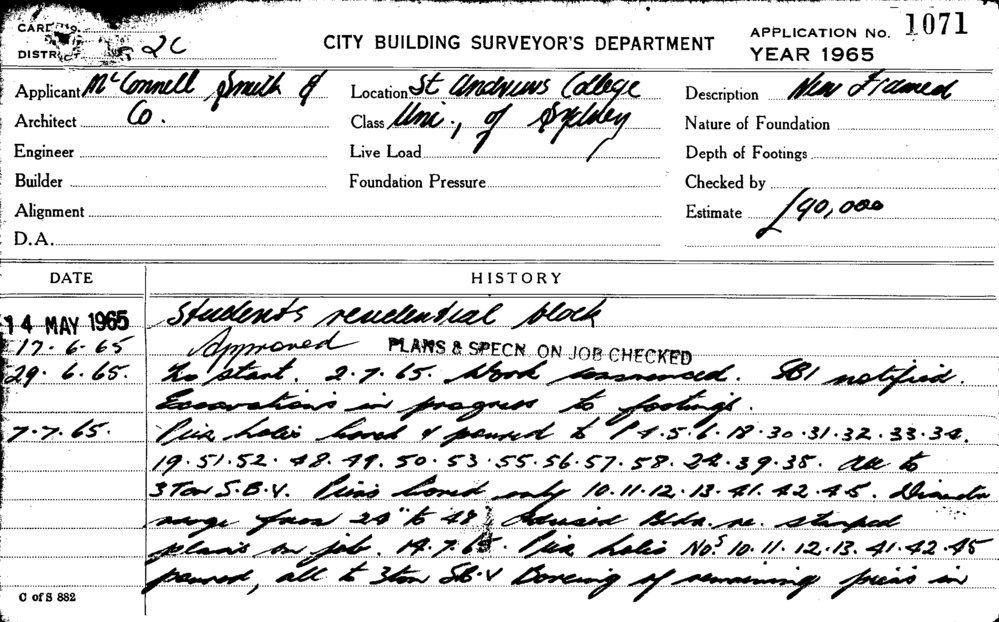 CARD No.
DISTRICT 2C
CITY BUILDING SURVEYOR'S DEPARTMENT
APPLICATION No. 1071
YEAR 1965
Applicant McConnell Smith &
Architect Co.
Engineer
Builder
Alignment
D.A.
Location St Andrews College
Class Uni., of Sydney
Live Load
Foundation Pressure
Description New Framed
Nature of Foundation
Depth of Footings
Checked by
Estimate £90,000
DATE HISTORY
14 MAY 1965 Students residential block
17.6.65 Approved PLANS & SPECN. ON JOB CHECKED
29.6.65. To start. 2.7.65. Work commenced. SBI notified.
Excavations in progress to footings.
7.7.65. Pier holes bored & poured to P 4.5.6.18.30.31.32.33.34.
19.51.52.48.49.50.53.55.56.57.58.24.39.38. All to
3 Ton S.B.V. Piers bored only 10.11.12.13.41.42.45. Diameter
range from 24" to 48" Advised Bldr. re. stamped
plans on job. 14.7.65. Pier holes Nos 10.11.12.13.41.42.45
poured, all to 3 ton SB.V Boreing of remaining piers in
C of S 882